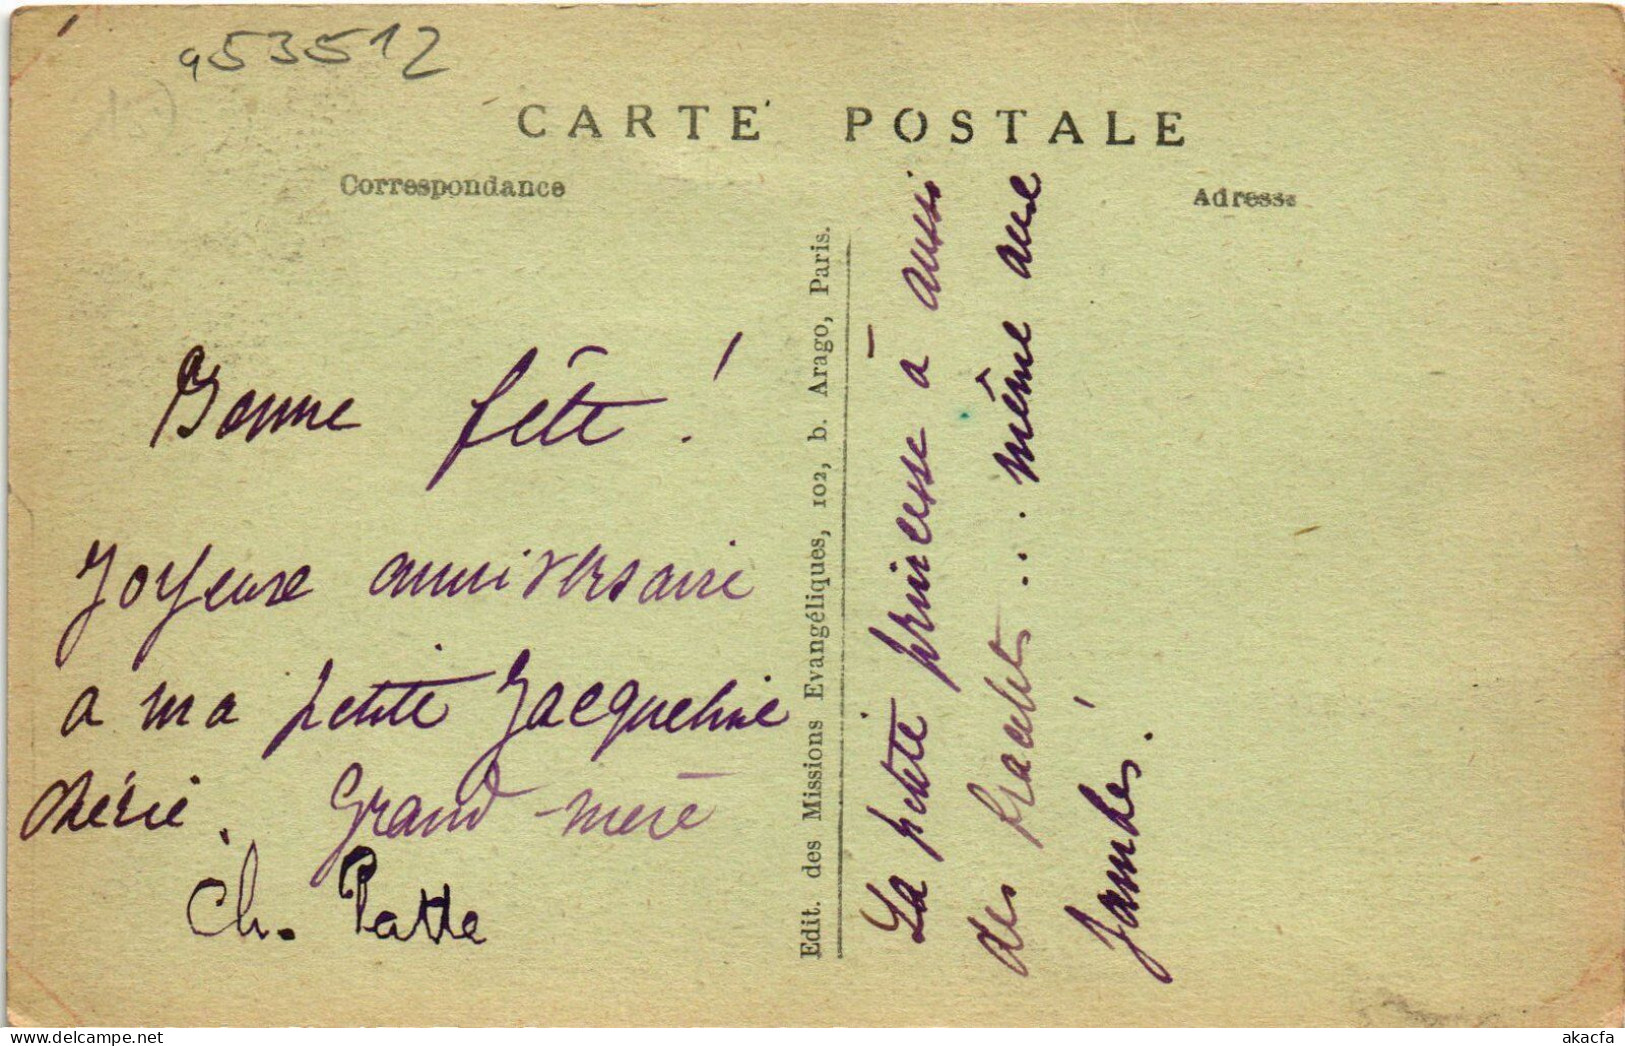 953512
CARTE POSTALE
Correspondance
Adresse
Bonne fête !
Joyeuse anniversaire
a ma petite Jacqueline
chérie. Grand-mère
Ch. Patte
Edit. des Missions Evangéliques, 102, b. Arago, Paris.
La petite princesse à aussi
des bracelets... même aux
Jambes.
akacfa